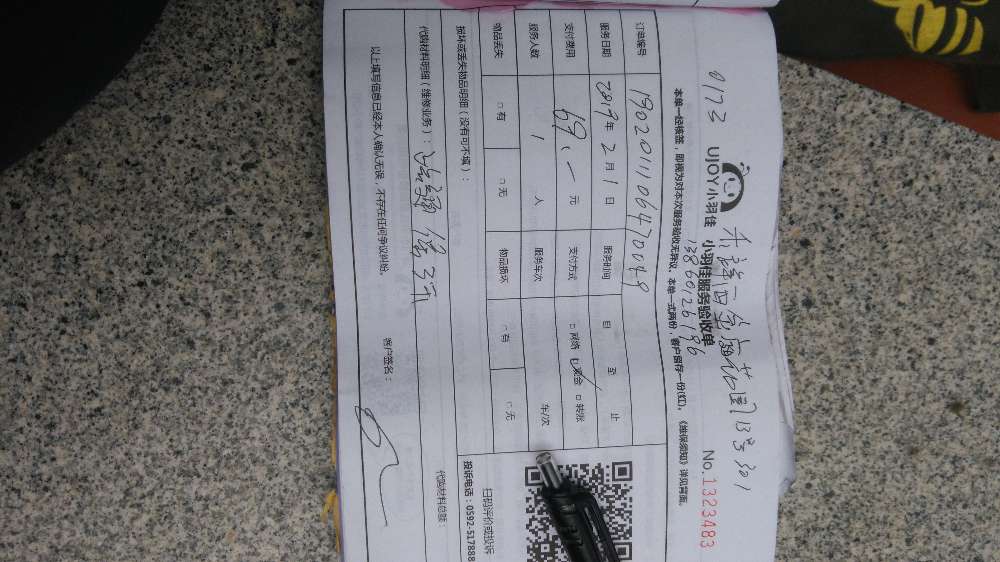 0173
UJOY小羽佳 小羽佳服务验收单
13860126196
No.1323483
本单一经核签，即视为对本次服务验收无异议。本单一式两份，客户留存一份(红)。《维保须知》详见背面。
订单编号 1902011106470089
服务日期 2019年2月1日 服务时间 自 至 止
支付费用 69.一元 支付方式 □网络 ☑现金 □转账
服务人数 1 人 服务车次 车/次
物品丢失 □有 □无 物品损坏 □有 □无
损坏或丢失物品明细（没有可不填）：
代购材料明细（维修业务）：
代购材料总额：
以上填写信息已经本人确认无误，不存在任何争议纠纷。 客户签名：
扫码评价或投诉
投诉电话：0592-517888